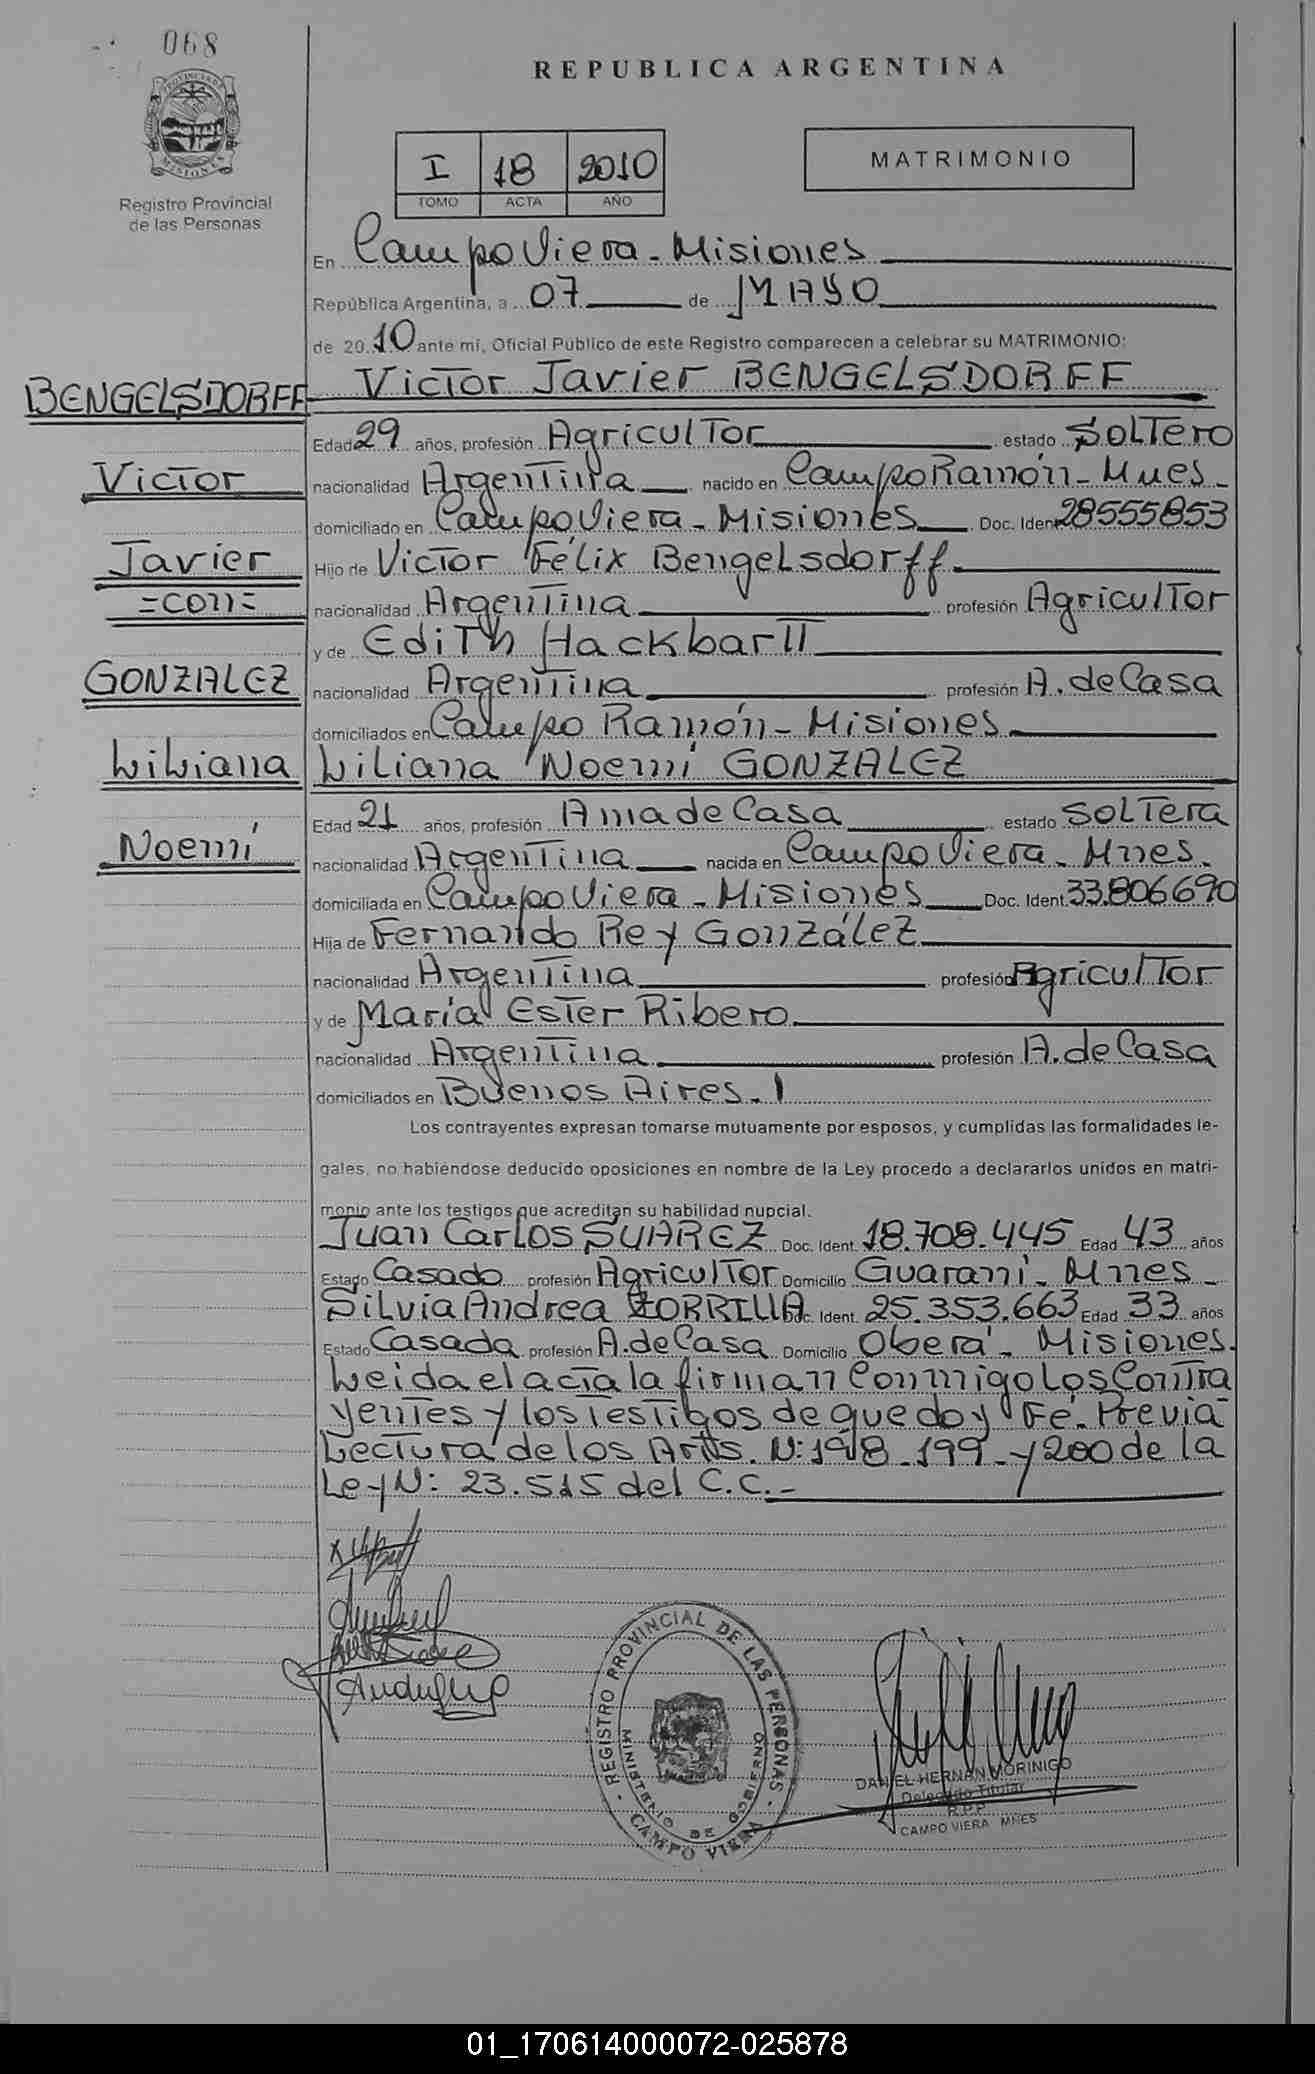 068
PROVINCIA DE
MISIONES
Registro Provincial
de las Personas
REPUBLICA ARGENTINA
I 18 2010
TOMO ACTA AÑO
MATRIMONIO
En Campo Viera - Misiones
República Argentina, a 07 de MAYO
de 20 10 ante mí, Oficial Público de este Registro comparecen a celebrar su MATRIMONIO:
BENGELSDORFF Victor Javier BENGELSDORFF
Edad 29 años, profesión Agricultor estado SOLTERO
Victor nacionalidad Argentina nacido en Campo Ramón - Mnes -
domiciliado en Campo Viera - Misiones Doc. Ident. 28555853
Javier Hijo de Victor Félix Bengelsdorff
=con= nacionalidad Argentina profesión Agricultor
y de Edith Hackbartt
GONZALEZ nacionalidad Argentina profesión A. de Casa
domiciliados en Campo Ramón - Misiones
Liliana Liliana Noemí GONZALEZ
Edad 21 años, profesión Ama de Casa estado SOLTERA
Noemí nacionalidad Argentina nacida en Campo Viera - Mnes.
domiciliada en Campo Viera - Misiones Doc. Ident. 33.806690
Hija de Fernando Rey González
nacionalidad Argentina profesión Agricultor
y de María Ester Ribero
nacionalidad Argentina profesión A. de Casa
domiciliados en Buenos Aires. 1
Los contrayentes expresan tomarse mutuamente por esposos, y cumplidas las formalidades le-
gales, no habiéndose deducido oposiciones en nombre de la Ley procedo a declararlos unidos en matri-
monio ante los testigos que acreditan su habilidad nupcial.
Juan Carlos SUAREZ Doc. Ident. 18.708.445 Edad 43 años
Estado Casado profesión Agricultor Domicilio Guaraní - Mnes -
Silvia Andrea ZORRILLA Doc. Ident. 25.353.663 Edad 33 años
Estado Casada profesión A. de Casa Domicilio Oberá - Misiones.
Leida el acta la firman conmigo los contra
yentes y los testigos de que doy Fé. Previa
Lectura de los Arts. N: 198 - 199 - y 200 de la
Ley N: 23.515 del C.C. -
REGISTRO PROVINCIAL DE LAS PERSONAS
MINISTERIO DE GOBIERNO
CAMPO VIERA
DANIEL HERNAN MORINIGO
Delegado Titular
R.P.P.
CAMPO VIERA MNES
01_170614000072-025878